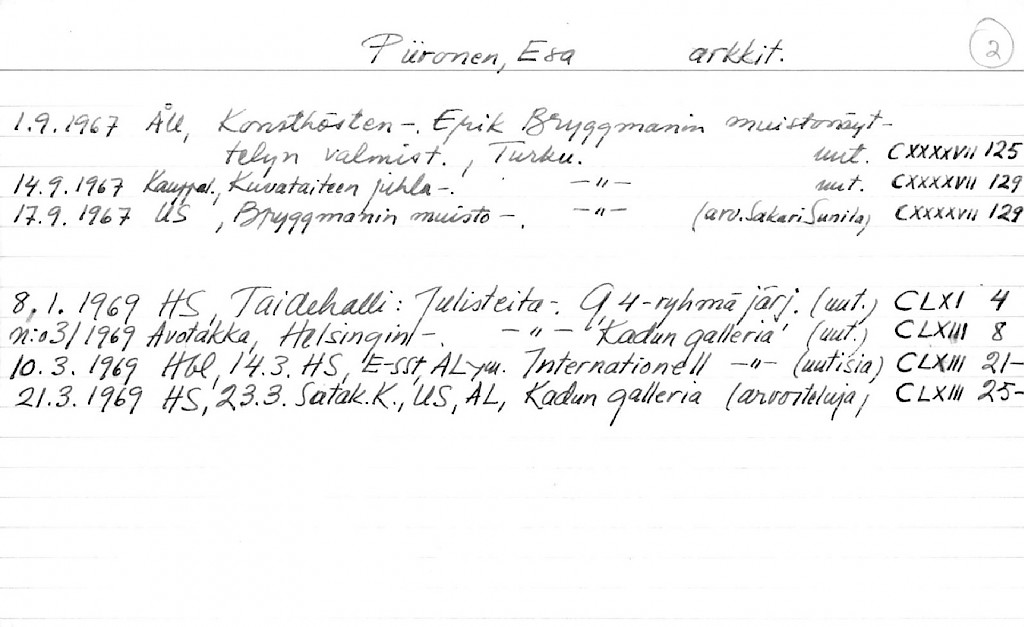 Piironen, Esa arkkit. 2
1.9.1967 ÅU, Konsthösten -. Erik Bryggmanin muistonäyt-
telyn valmist., Turku. uut. CXXXXVII 125
14.9.1967 Kauppal., Kuvataiteen juhla -. -"- uut. CXXXXVII 129
17.9.1967 US, Bryggmanin muisto -. -"- (arv. Sakari Sunila) CXXXXVII 129
8.1.1969 HS, Taidehalli: Julisteita -. G,4-ryhmä järj. (uut.) CLXI 4
n:o 3/1969 Avotakka, Helsingin -. -"- "Kadun galleria" (uut.) CLXIII 8
10.3.1969 Hbl, 14.3. HS, E-sst, AL-ym. Internationell -"- (uutisia) CLXIII 21-
21.3.1969 HS, 23.3. Satak.K., US, AL, Kadun galleria (arvosteluja) CLXIII 25-